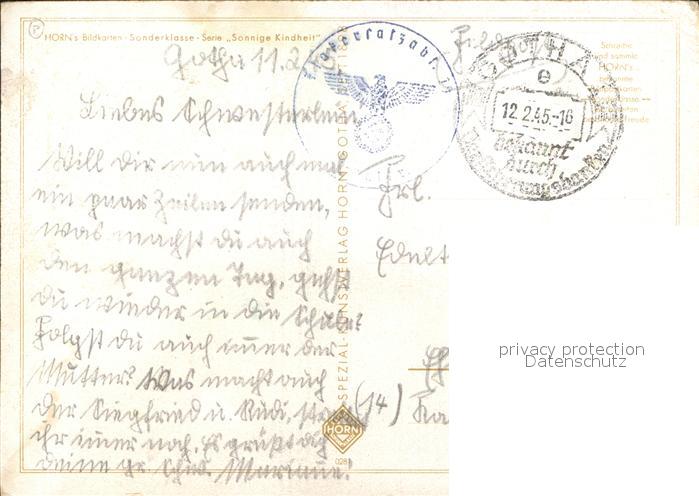 HORN's Bildkarten - Sonderklasse - Serie „Sonnige Kindheit"
Gotha 11.2.
Liebes Schwesterlein
Will dir nun auch mal
ein paar Zeilen senden,
was machst du auch
den ganzen Tag, gehst
du wieder in die Schule?
Folgst du auch immer der
Mutter? Was macht auch
der Siegfried u. Rudi,
ihr immer noch. Es grüßt dich
deine gr. Schw. Marianne!
SPEZIAL-KUNSTVERLAG HORN, GOTHA
HORN
GOTHA
e
12.2.45.-16
bekannt
durch
Versicherungsbanken
Schreibe
und sammle
HORN's
Frl.
Edelt
(14) Ka
privacy protection
Datenschutz